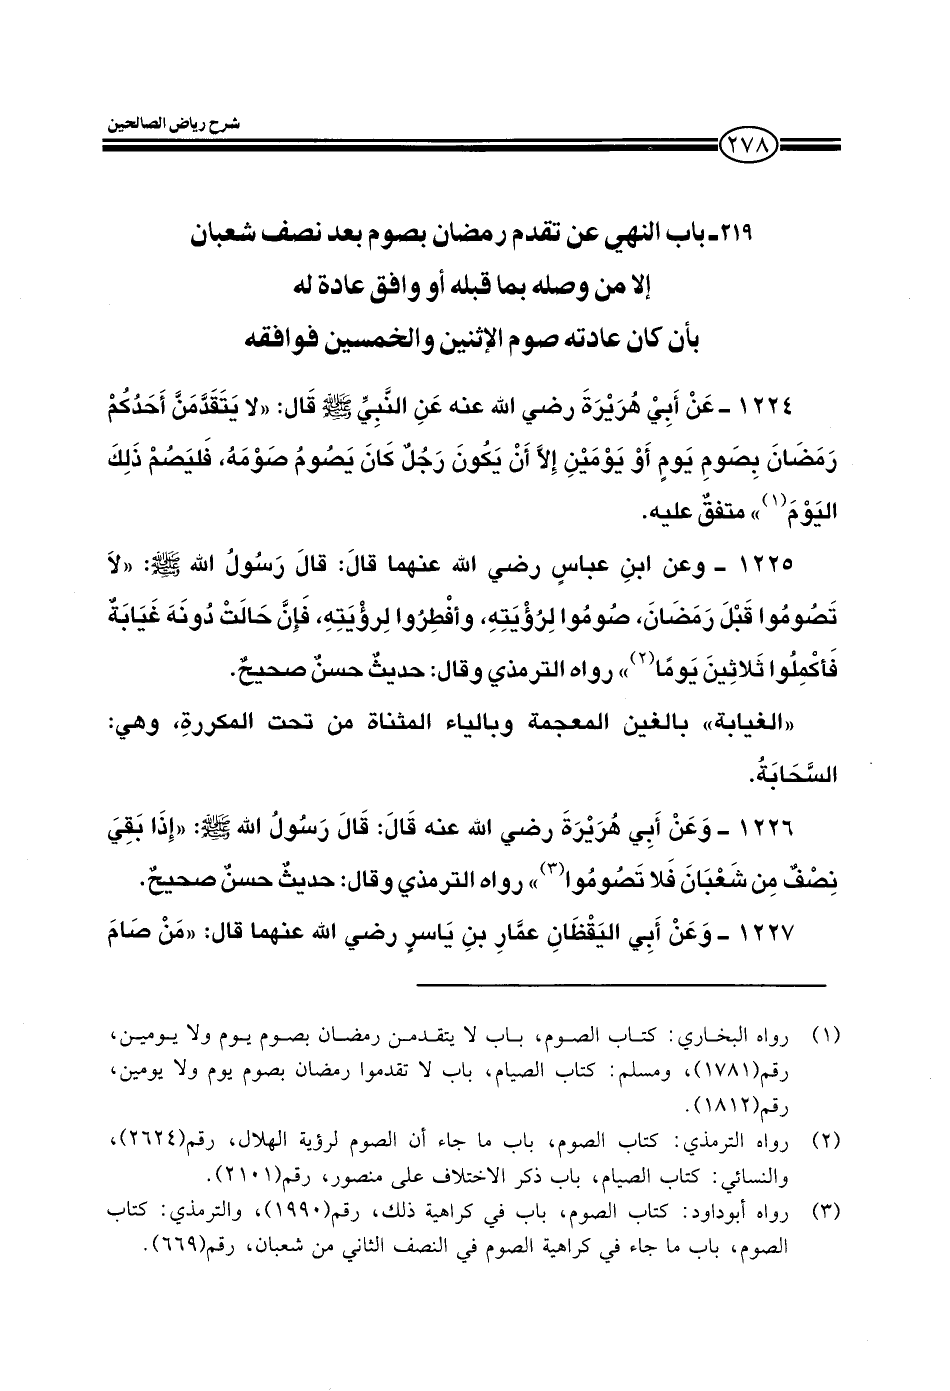 شرح رياض الصالحين
٢٧٨
٢١٩ـ باب النهي عن تقدم رمضان بصوم بعد نصف شعبان
إلا من وصله بما قبله أو وافق عادة له
بأن كان عادته صوم الإثنين والخمسين فوافقه
١٢٢٤ ـ عَنْ أَبِيْ هُرَيْرَةَ رضي الله عنه عَنِ النَّبِيِّ ﷺ قَال: «لا يَتَقَدَّمَنَّ أَحَدُكُمْ
رَمَضَانَ بِصَومِ يَومٍ أَوْ يَوْمَيْنِ إِلاَّ أَنْ يَكُونَ رَجُلٌ كَانَ يَصُومُ صَوْمَهُ، فَليَصُمْ ذَلِكَ
اليَوْمَ(١)» متفقٌ عليه.
١٢٢٥ ـ وعن ابنِ عباسٍ رضي الله عنهما قالَ: قالَ رَسُولُ الله ﷺ: «لاَ
تَصُومُوا قَبْلَ رَمَضَانَ، صُومُوا لِرُؤْيَتِهِ، وأفْطِرُوا لِرؤْيَتِهِ، فَإنَّ حَالَتْ دُونَهَ غَيَابَةٌ
فَأكْمِلُوا ثَلاثِينَ يَومًا(٢)» رواه الترمذي وقال: حديثٌ حسنٌ صحيحٌ.
«الغيابة» بالغين المعجمة وبالياء المثناة من تحت المكررةِ، وهي:
السَّحَابَةُ.
١٢٢٦ ـ وَعَنْ أبي هُرَيْرَةَ رضي الله عنه قَالَ: قَالَ رَسُولُ الله ﷺ: «إِذَا بَقِيَ
نِصْفٌ مِن شَعْبَانَ فَلا تَصُومُوا(٣)» رواه الترمذي وقال: حديثٌ حسنٌ صحيحٌ.
١٢٢٧ ـ وَعَنْ أبي اليَقْظَانِ عمَّارِ بنِ يَاسرٍ رضي الله عنهما قال: «مَنْ صَامَ
(١) رواه البخاري: كتاب الصوم، باب لا يتقدمن رمضان بصوم يوم ولا يومين،
رقم(١٧٨١)، ومسلم: كتاب الصيام، باب لا تقدموا رمضان بصوم يوم ولا يومين،
رقم(١٨١٢).
(٢) رواه الترمذي: كتاب الصوم، باب ما جاء أن الصوم لرؤية الهلال، رقم(٢٦٢٤)،
والنسائي: كتاب الصيام، باب ذكر الاختلاف على منصور، رقم(٢١٠١).
(٣) رواه أبوداود: كتاب الصوم، باب في كراهية ذلك، رقم(١٩٩٠)، والترمذي: كتاب
الصوم، باب ما جاء في كراهية الصوم في النصف الثاني من شعبان، رقم(٦٦٩).